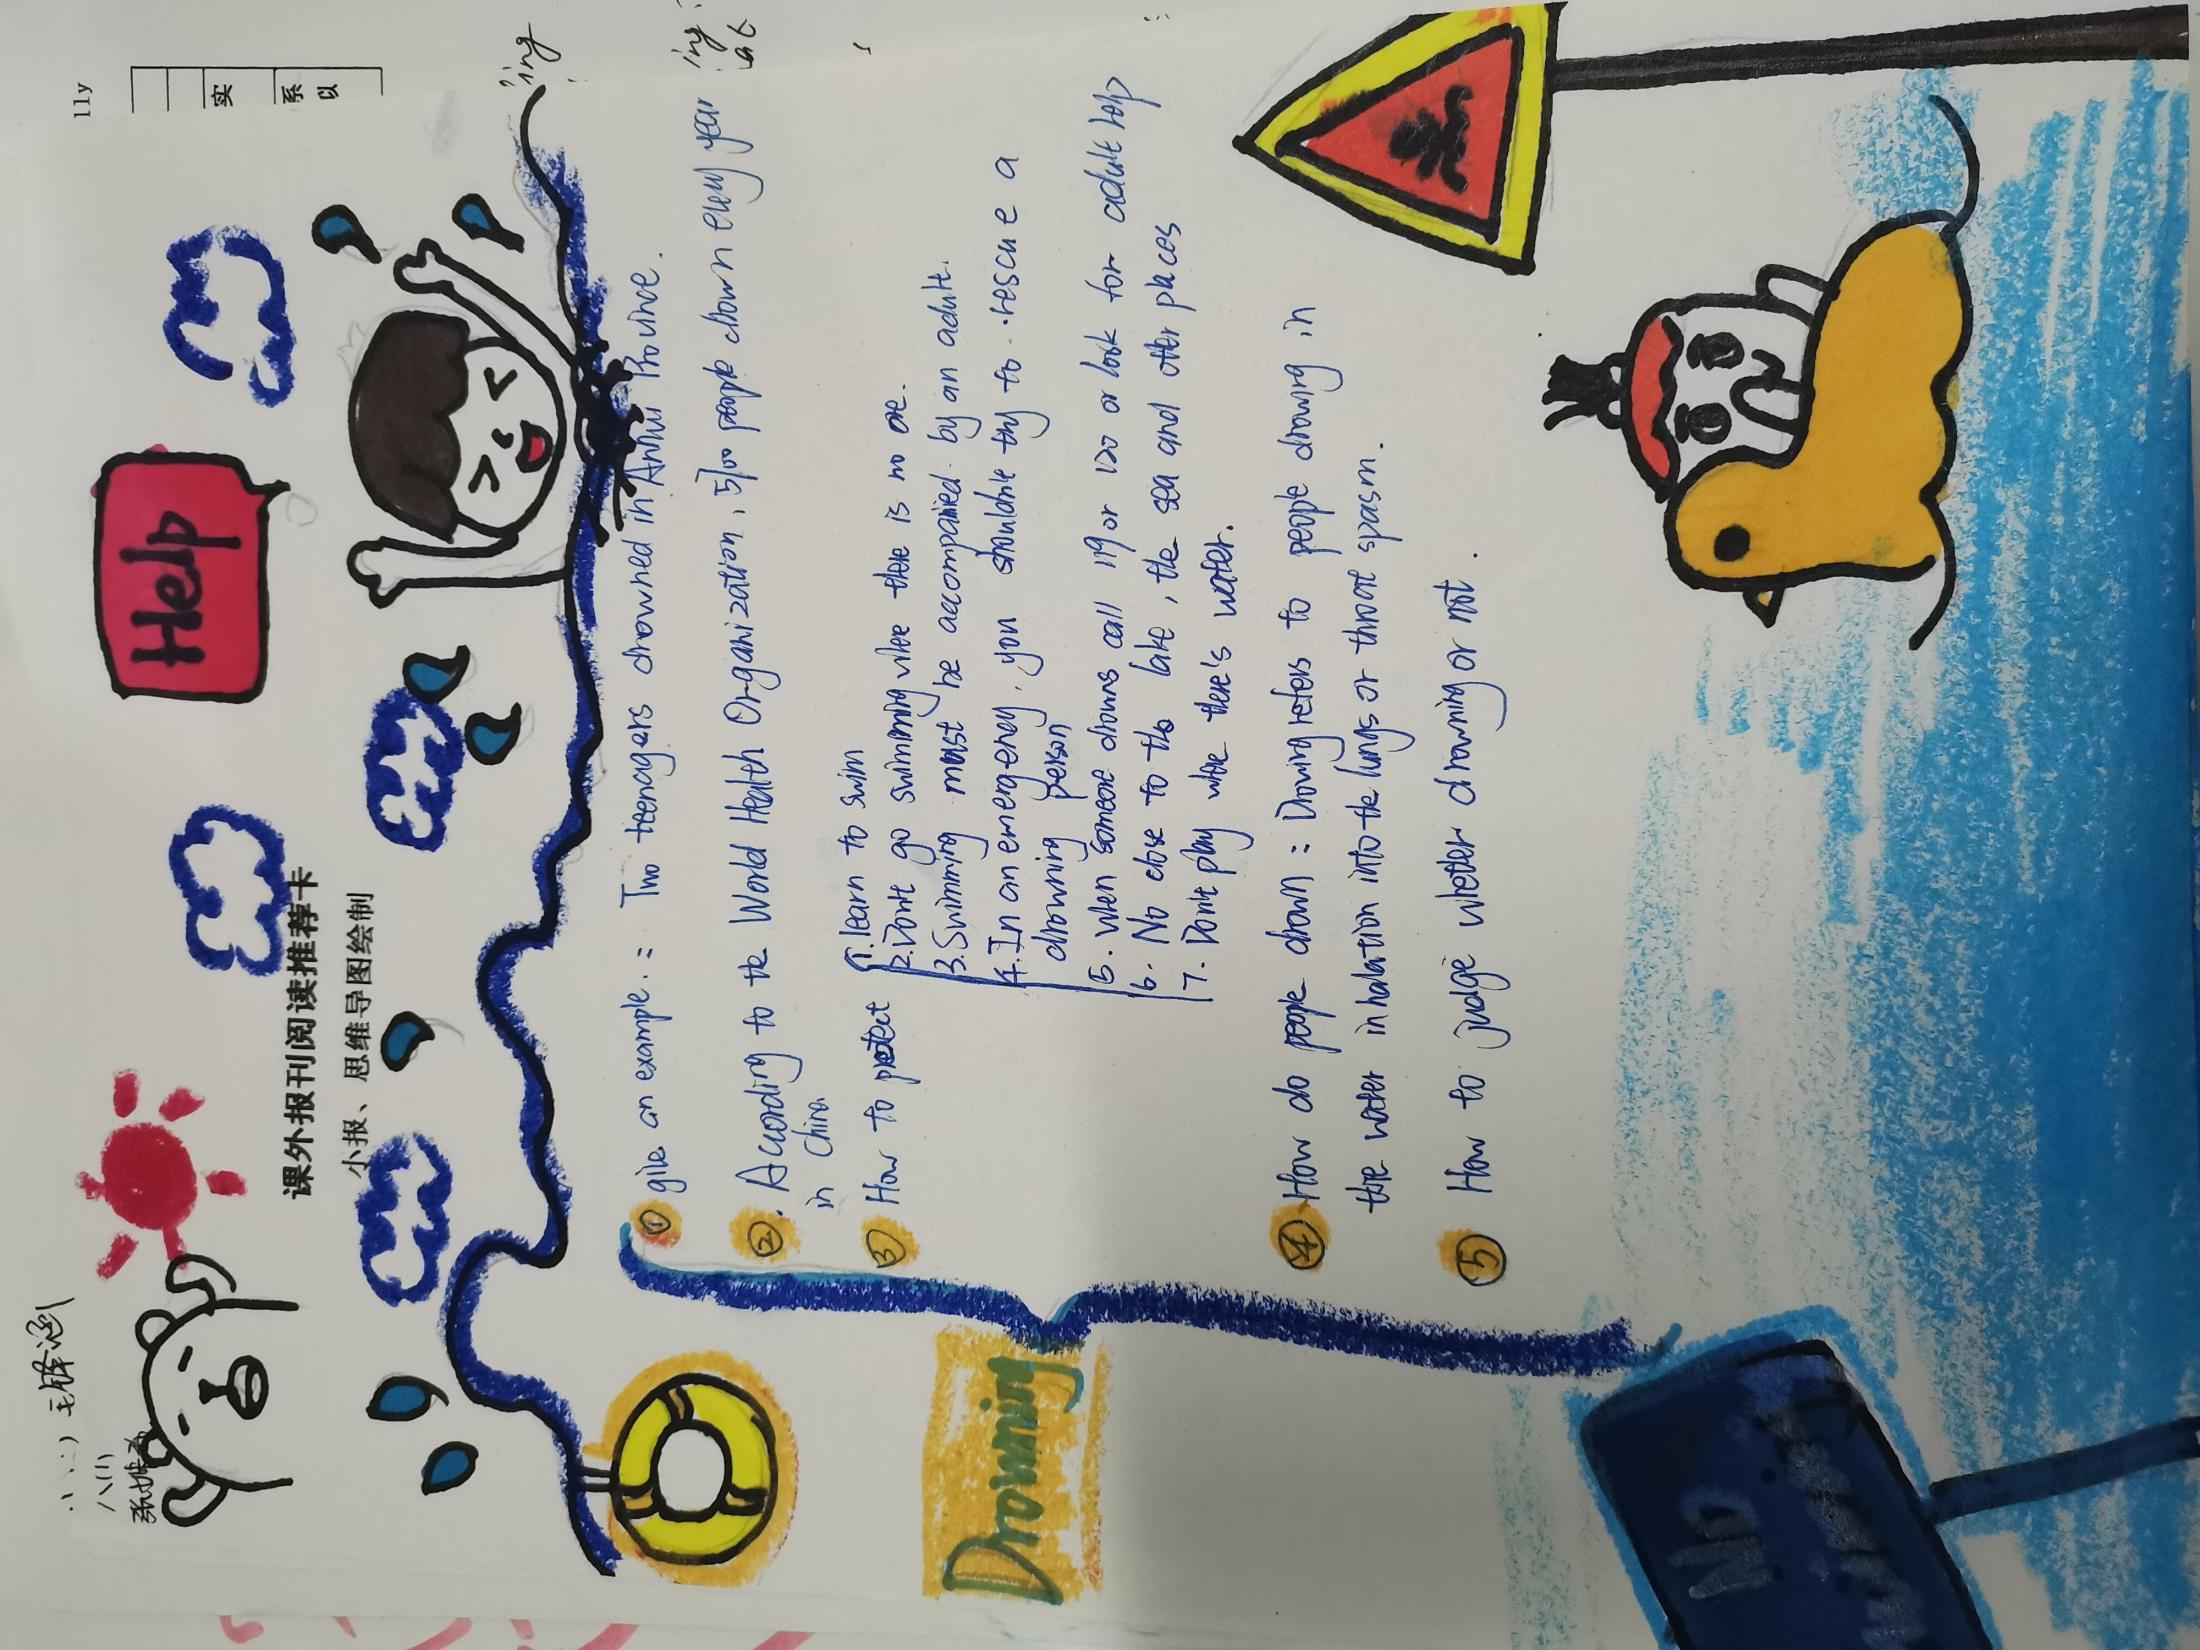 课外报刊阅读推荐卡
小报、思维导图绘制
Help
Drowning
① give an example.: Two teenagers drowned in Anhui Province.
②. According to the World Health Organization, 5700 people drown every year
in China
③ How to protect
1. learn to swim
2. Dont go swimming where there is no one.
3. Swimming must be accompanied by an adult.
4. In an emergency, you shouldnt try to rescue a
drowning person
5. when someone drowns call 119 or 120 or look for adult help
6. No close to the lake, the sea and other places
7. Dont play where there's water.
④ How do people drown: Drowing refers to people drowing in
the water inhalation into the lungs or throat spasm.
⑤ How to judge whether drowning or not.
No
lly
实
系
以
ing
ing